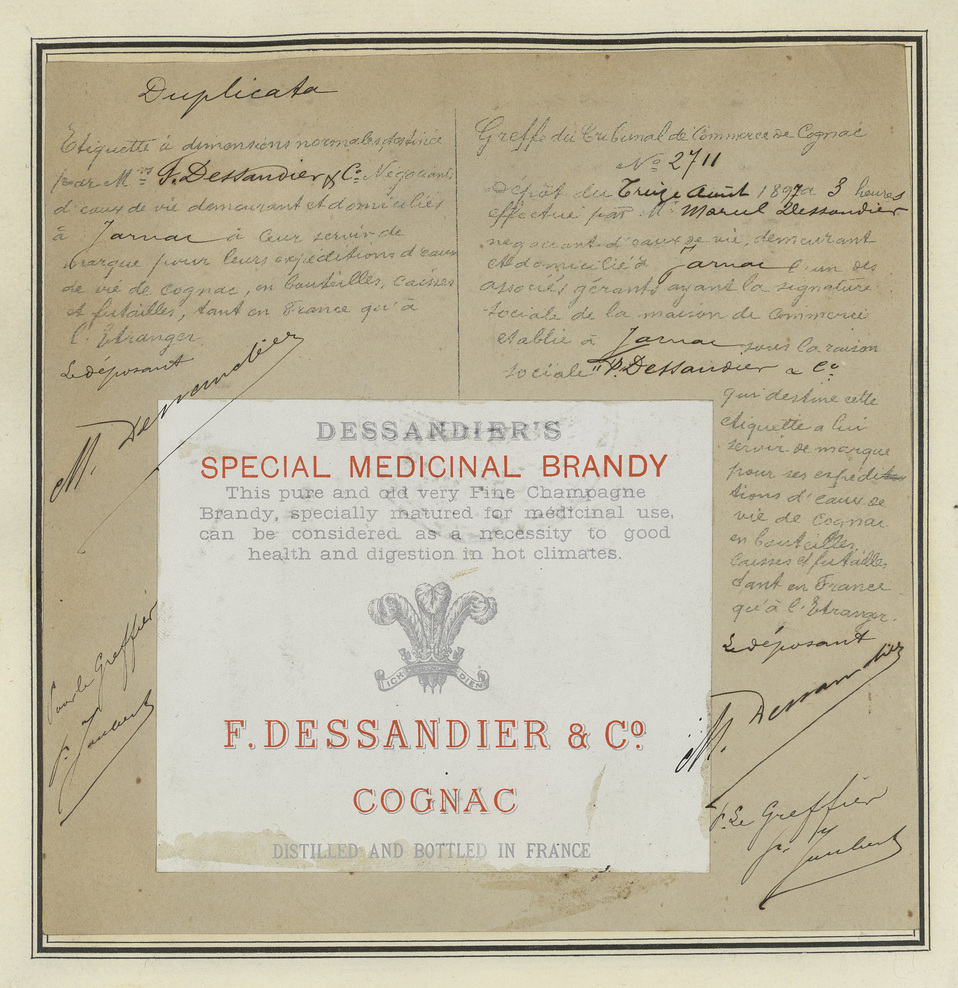 Duplicata
Etiquette à dimensions normales destinée
par Mrs F. Dessandier & Co Négociants
d'eaux de vie demeurant et domiciliés
à Jarnac à leur servir de
marque pour leurs expéditions d'eaux
de vie de Cognac, en bouteilles, caisses
et futailles, tant en France qu'à
l'Etranger.
Le déposant
M. Dessandier
Pour le Greffier
Greffe du Tribunal de Commerce de Cognac
No 2711
Dépôt du Treize Août 1897 à 3 heures
effectué par Mr Marcel Dessandier
négociant d'eaux de vie, demeurant
et domicilié à Jarnac l'un des
associés gérants ayant la signature
sociale de la maison de Commerce
établie à Jarnac sous la raison
sociale "F. Dessandier & Co
qui destine cette
étiquette a lui
servir de marque
pour ses expédi
tions d'eaux de
vie de Cognac
en bouteilles,
caisses et futailles
tant en France
qu'à l'Etranger.
Le déposant
M. Dessandier
P. Le Greffier
DESSANDIER'S
SPECIAL MEDICINAL BRANDY
This pure and old very Fine Champagne
Brandy, specially matured for medicinal use,
can be considered as a necessity to good
health and digestion in hot climates.
ICH DIEN
F. DESSANDIER & Co
COGNAC
DISTILLED AND BOTTLED IN FRANCE